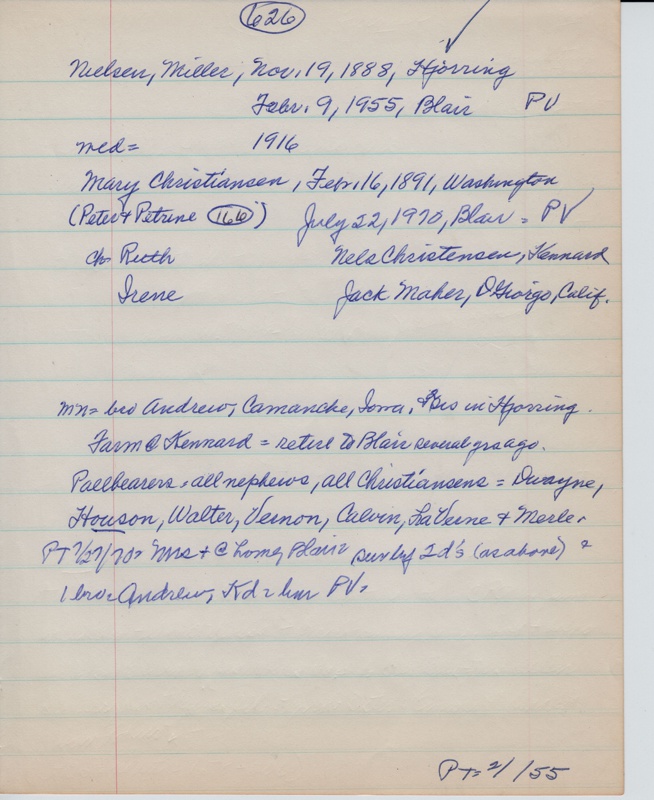 626
Nielsen, Miller, Nov. 19, 1888, Hjorring
Febr. 9, 1955, Blair PV
med = 1916
Mary Christiansen, Feb. 16, 1891, Washington
(Peter & Petrine 166) July 22, 1970, Blair = PV
ch Ruth Nels Christensen, Kennard
Irene Jack Maher, DiGiorgo, Calif.
mn = bro Andrew, Camanche, Iowa, & Bis in Hjorring.
Farm @ Kennard = retire to Blair several yrs ago.
Pallbearers = all nephews, all Christiansens = Dwayne,
Houson, Walter, Vernon, Calvin, LaVerne & Merle.
PT 7/27/70 = Mrs + @ home, Blair surv by 2 d's (as above) &
1 bro = Andrew, Kd = bur PV.
PT = 2/ /55